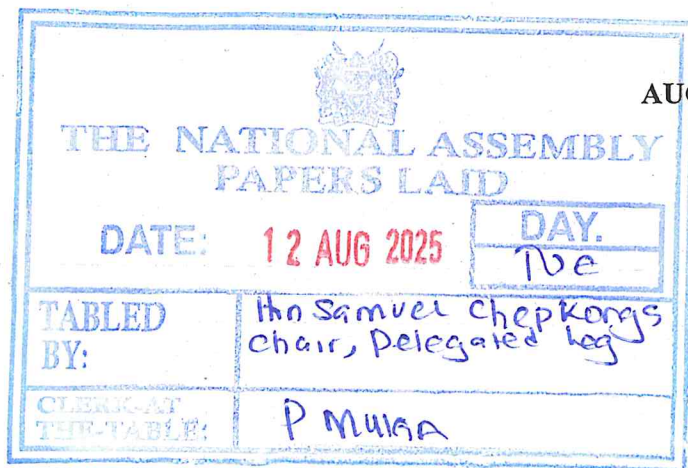 AUG
THE NATIONAL ASSEMBLY
PAPERS LAID
DATE: 12 AUG 2025
DAY.
Tue
TABLED BY:
Hon Samuel Chepkonga
Chair, Delegated Leg
CLERK-AT
THE-TABLE:
P Mulga